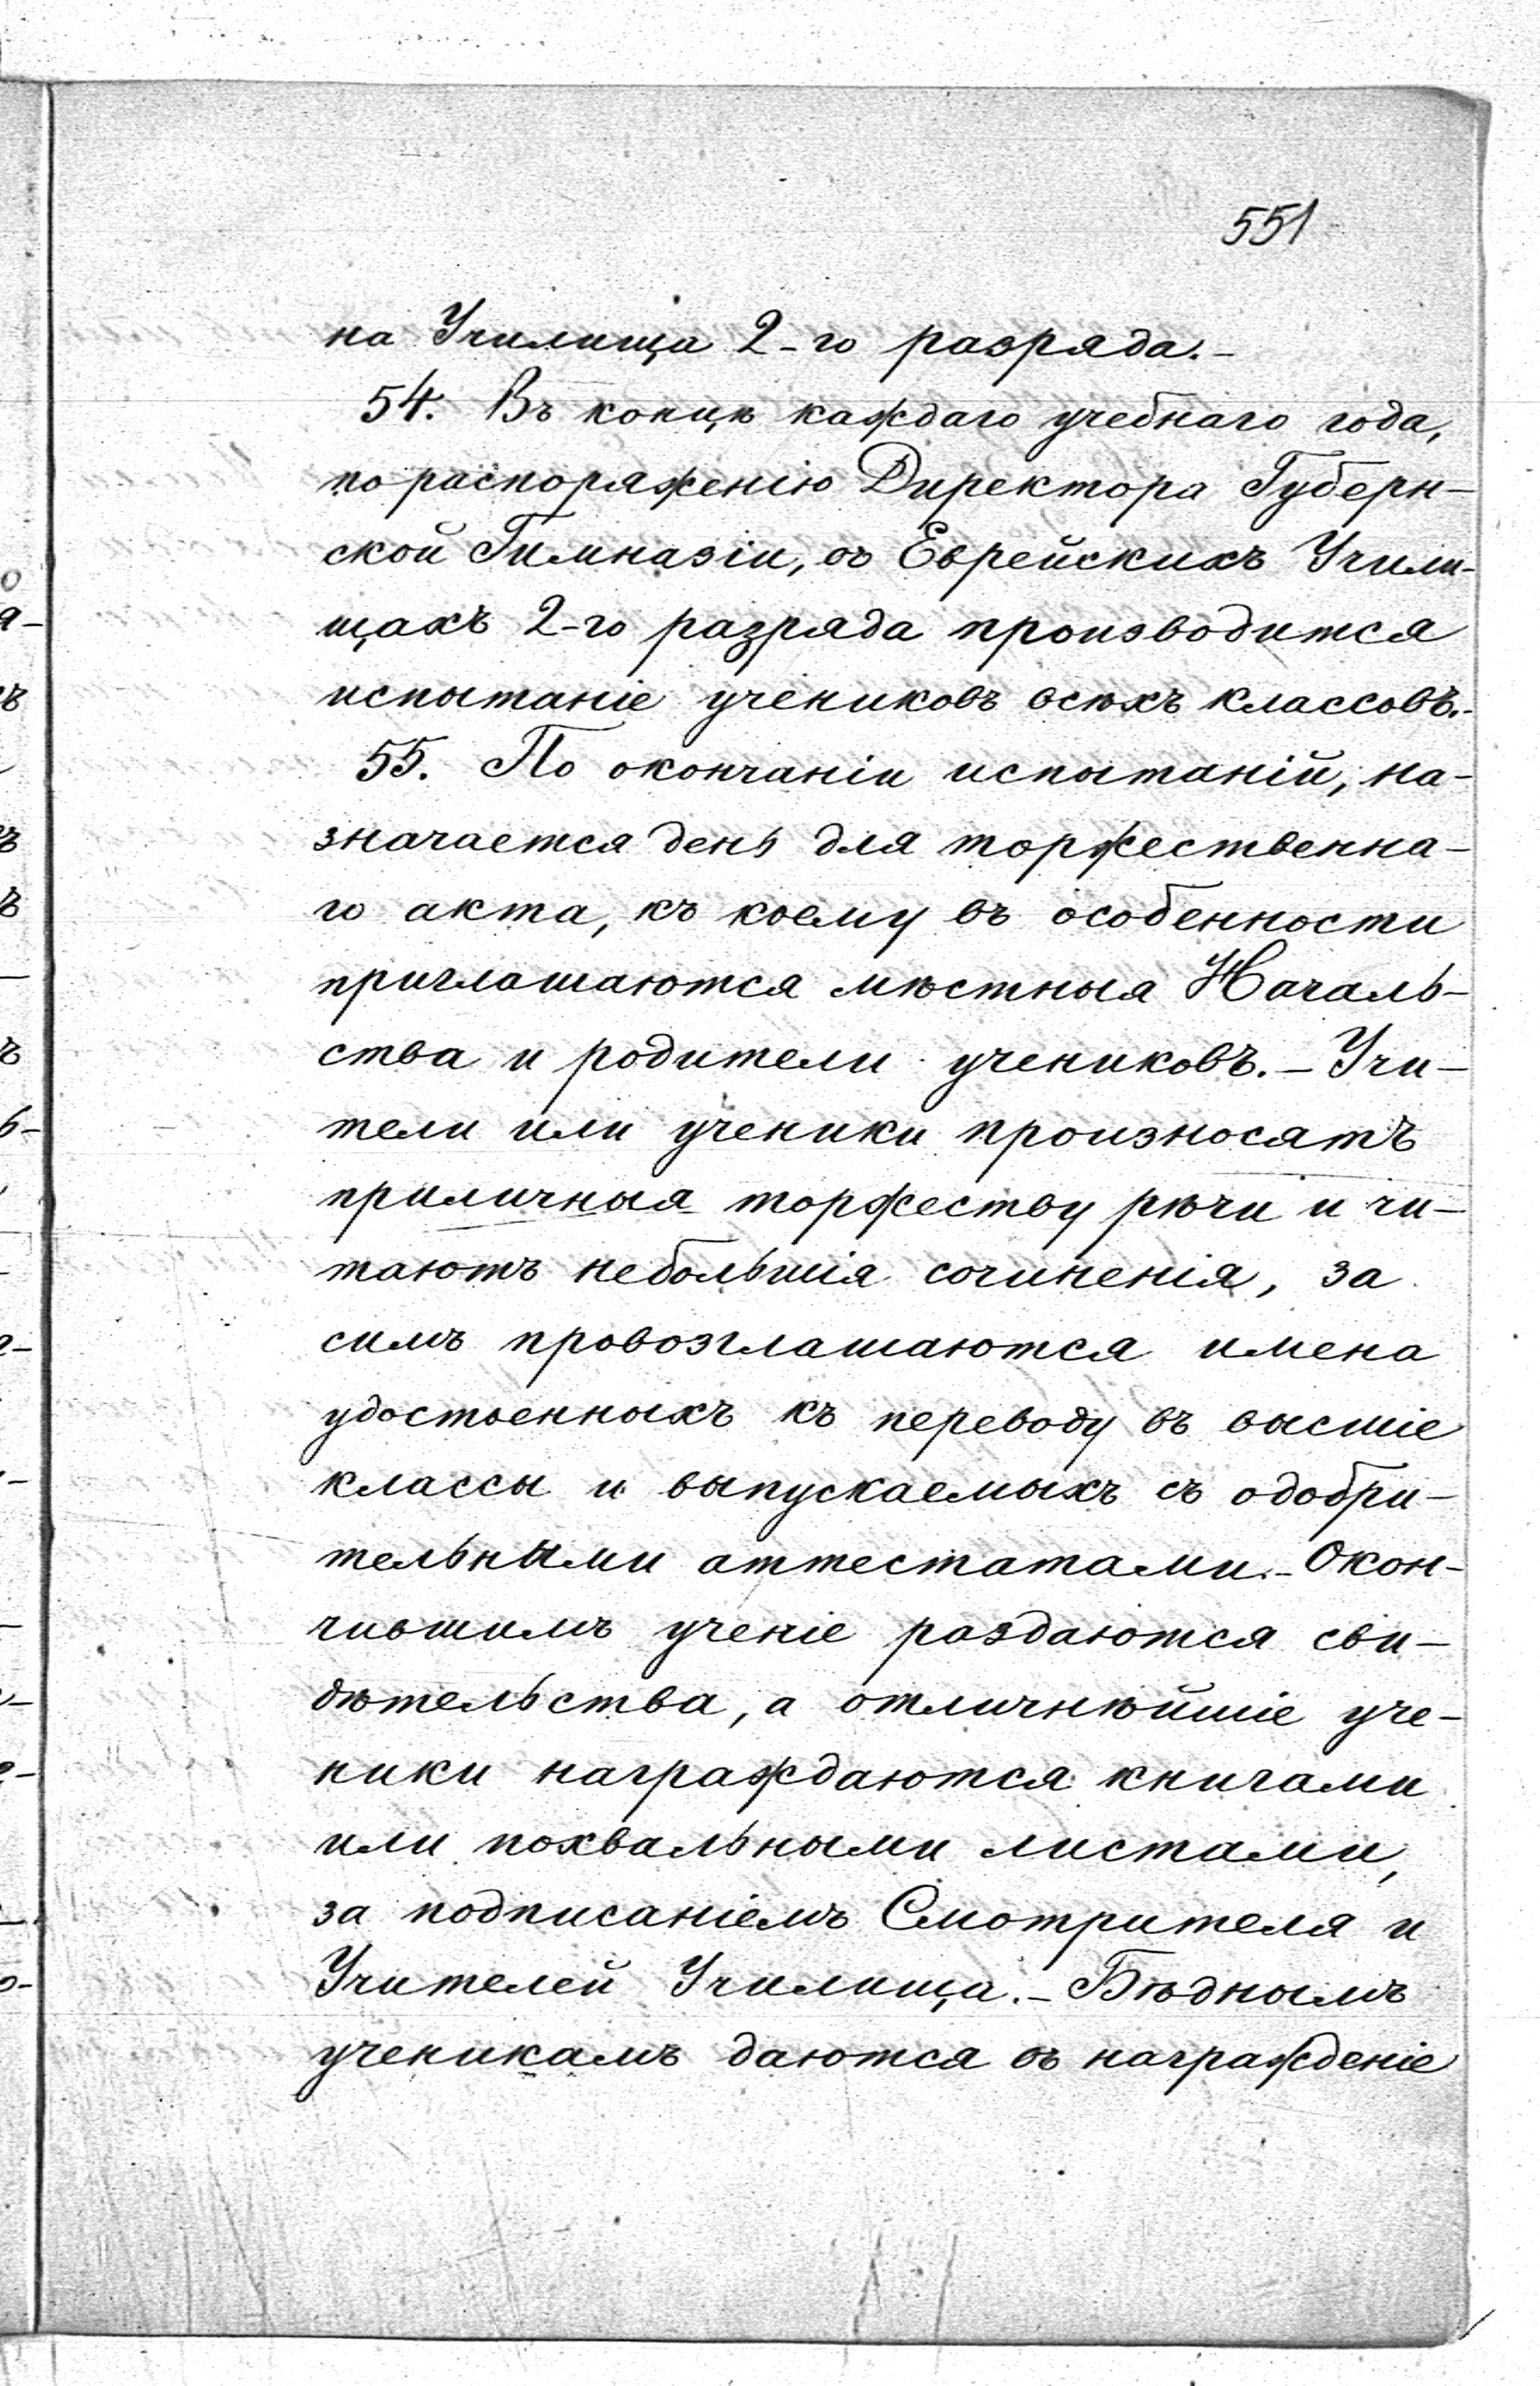 551
на Училища 2-го разряда.-
54. Въ концѣ каждаго учебнаго года,
по распоряженію Директора Губерн-
ской Гимназіи, въ Еврейскихъ Учили-
щахъ 2-го разряда производится
испытаніе учениковъ всѣхъ классовъ.-
55. По окончаніи испытаній, на-
значается день для торжественна-
го акта, къ коему въ особенности
приглашаются мѣстныя Началь-
ства и родители учениковъ.- Учи-
тели или ученики произносятъ
приличныя торжеству рѣчи и чи-
таютъ небольшія сочиненія, за
симъ провозглашаются имена
удостоенныхъ къ переводу въ высшіе
классы и выпускаемыхъ съ одобри-
тельными аттестатами.- Окон-
чившимъ ученіе раздаются сви-
дѣтельства, а отличнѣйшіе уче-
ники награждаются книгами
или похвальными листами,
за подписаніемъ Смотрителя и
Учителей Училища.- Бѣднымъ
ученикамъ даются въ награжденіе